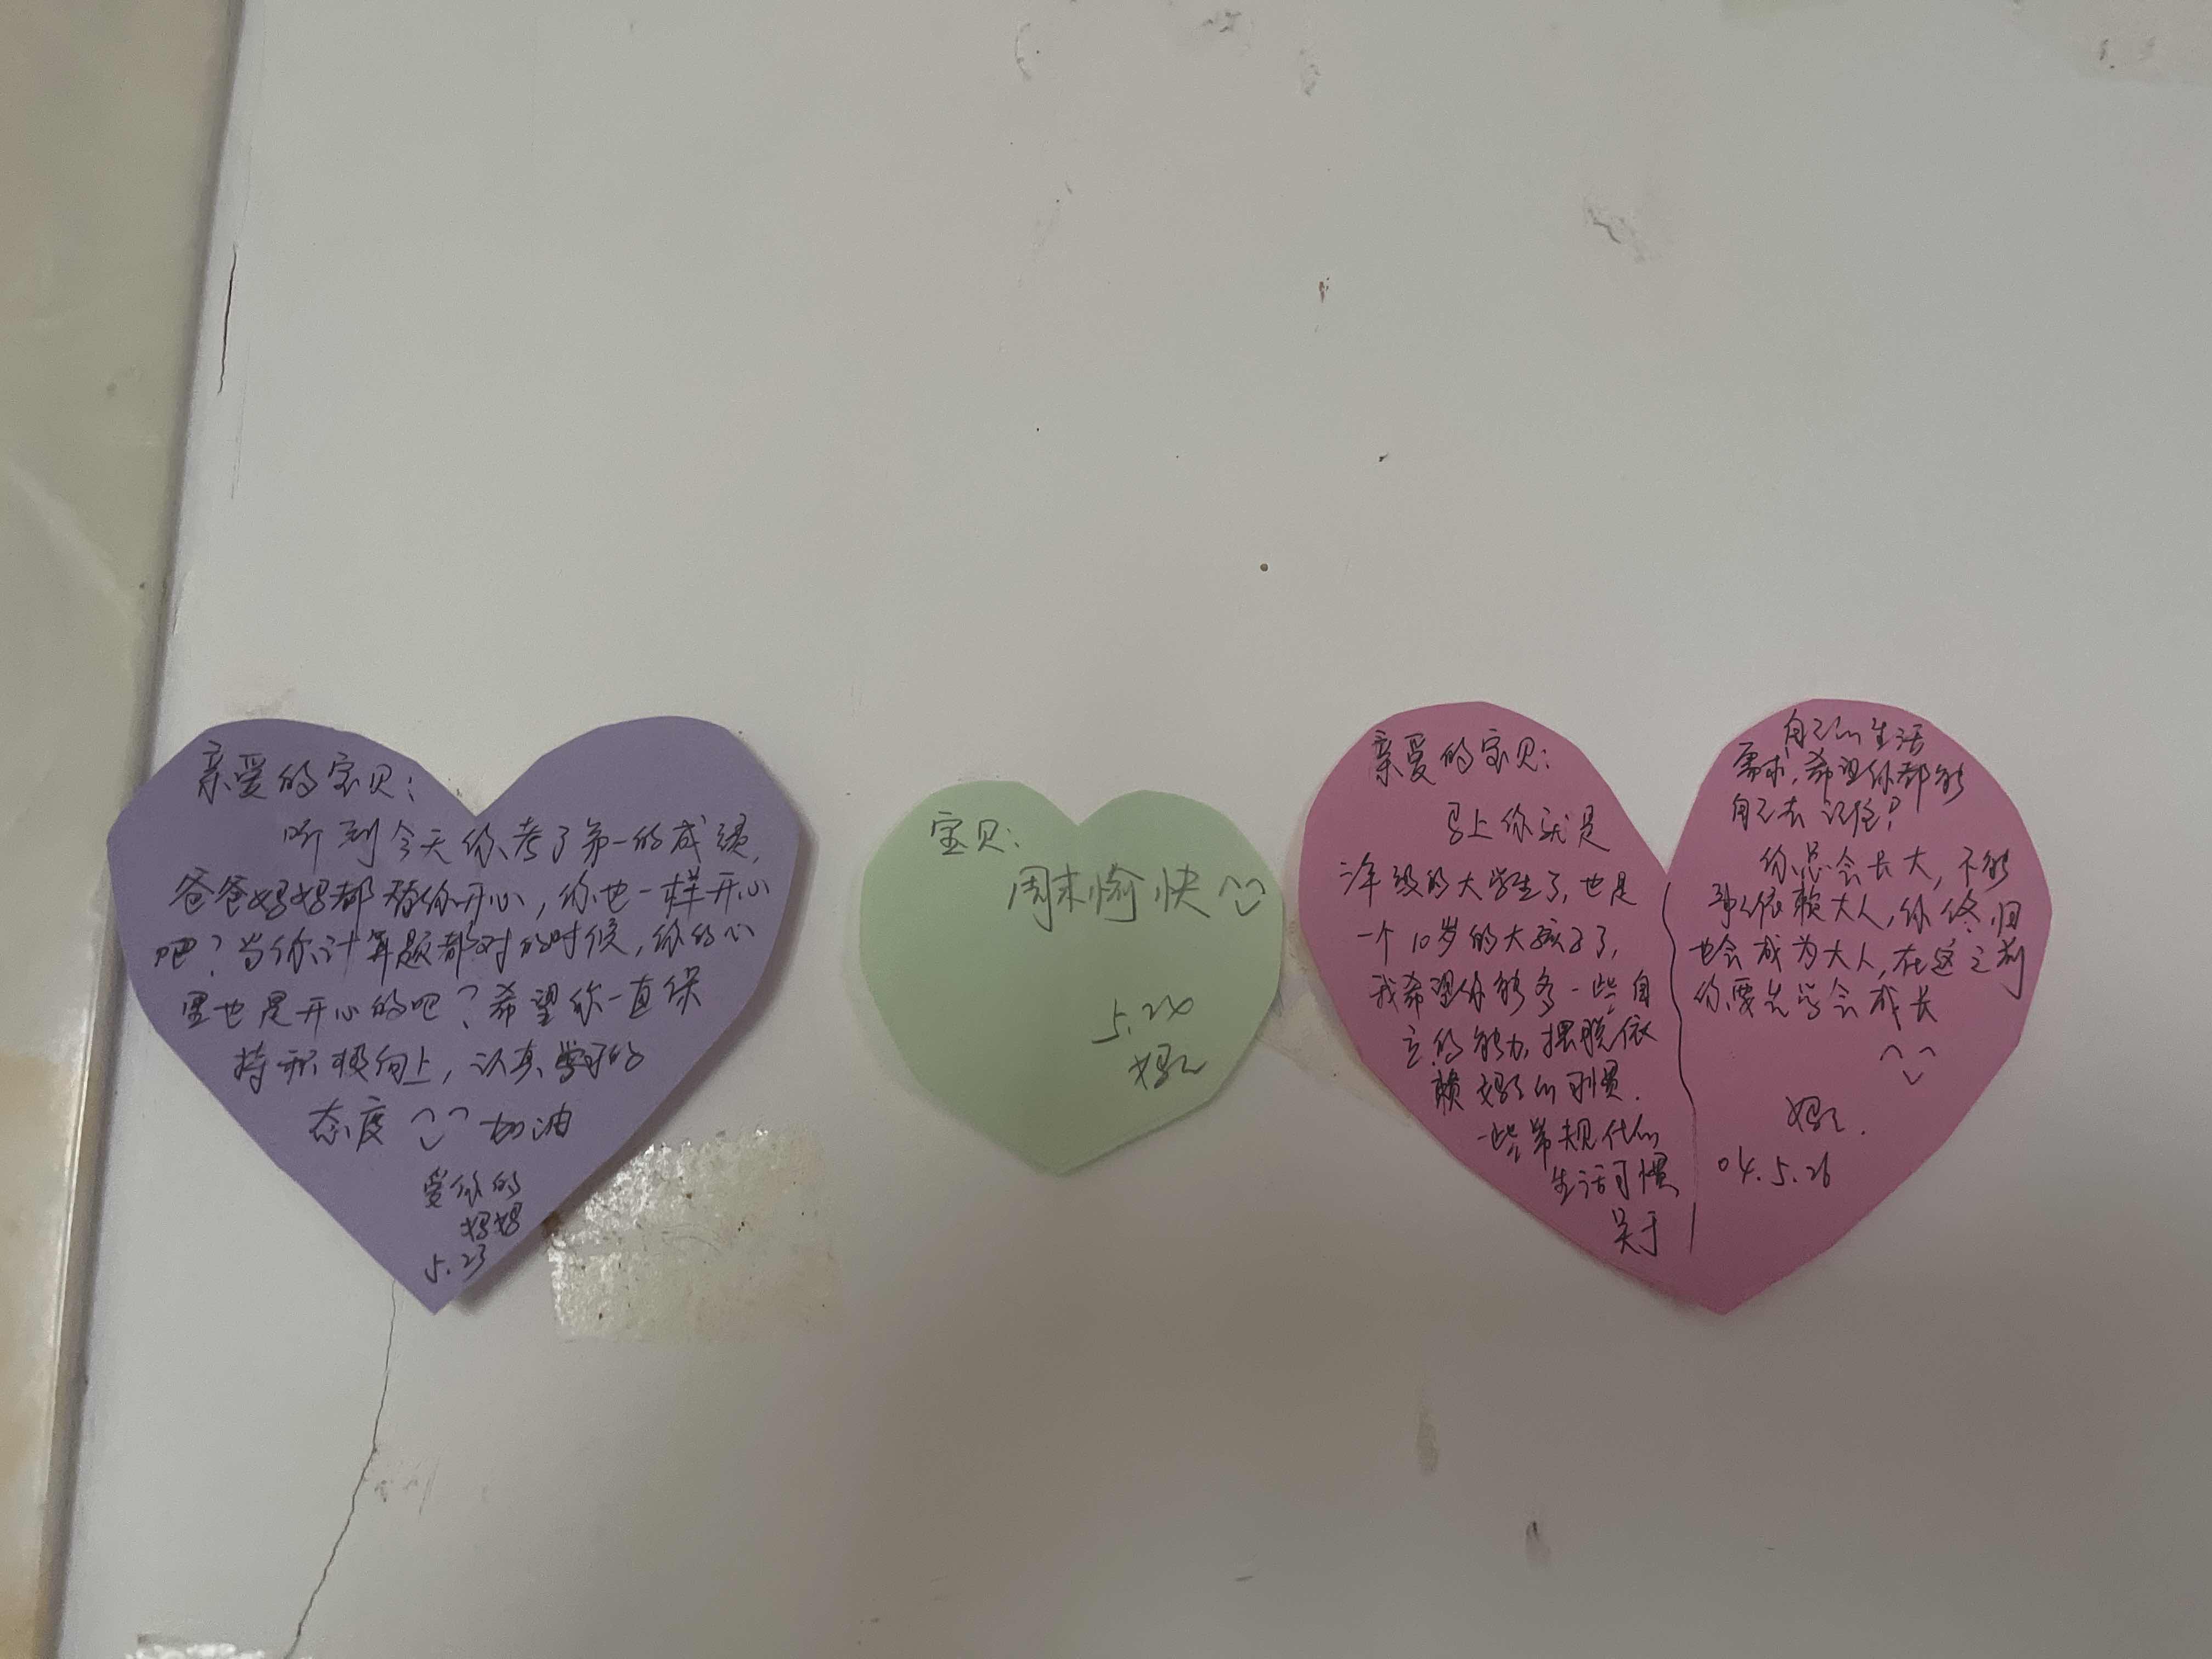 亲爱的宝贝：
听到今天你考了第一的成绩，
爸爸妈妈都替你开心，你也一样开心
吧？当你计算题都对的时候，你的心
里也是开心的吧？希望你一直保
持积极向上，认真学习的
态度 加油
爱你的
妈妈
5.23
宝贝：
周末愉快
5.24
妈妈
亲爱的宝贝：
马上你就是
年级的大学生了，也是
一个10岁的大孩子了，
我希望你能多一些自
立的能力，摆脱依
赖妈妈的习惯．
一些常规化的
生活习惯
关于
自己的生活
需求，希望你都能
自己去记住？
你总会长大，不能
事事依赖大人，你终归
也会成为大人，在这之前
你要先学会成长
妈妈．
04.5.26